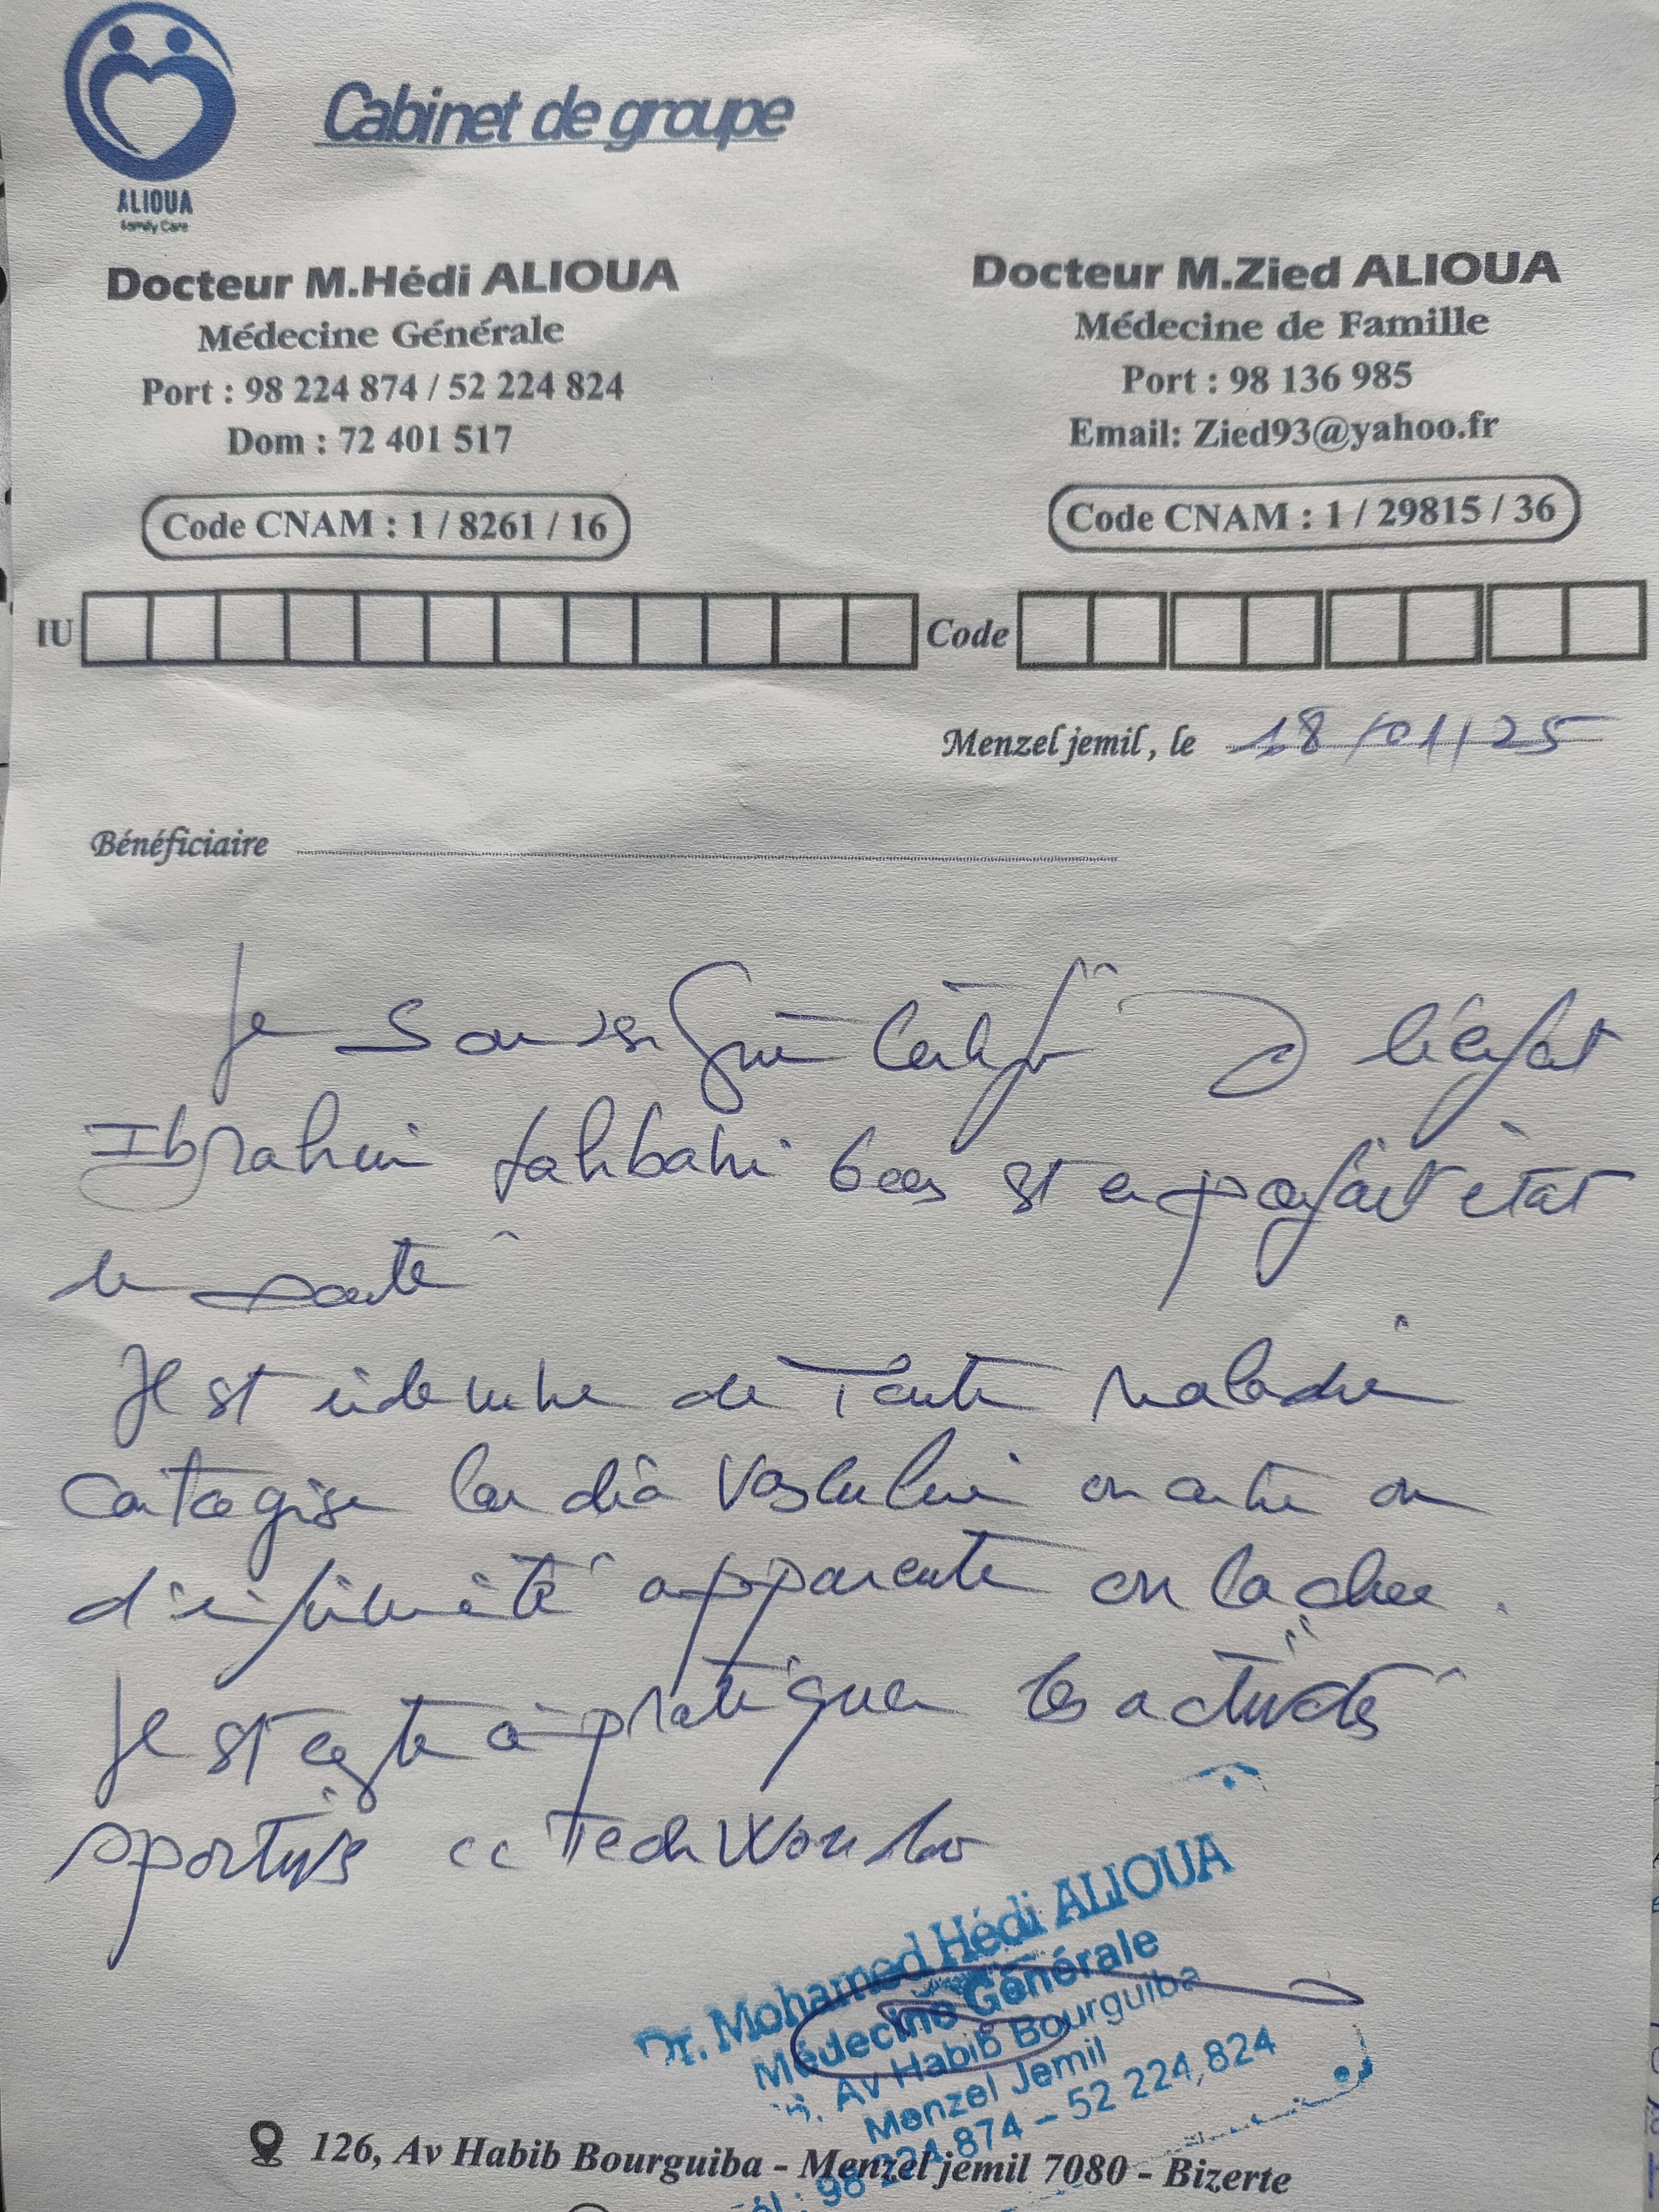 ALIOUA
Family Care
Cabinet de groupe
Docteur M.Hédi ALIOUA
Médecine Générale
Port : 98 224 874 / 52 224 824
Dom : 72 401 517
Code CNAM : 1 / 8261 / 16
Docteur M.Zied ALIOUA
Médecine de Famille
Port : 98 136 985
Email: Zied93@yahoo.fr
Code CNAM : 1 / 29815 / 36
IU
Code
Menzel jemil, le 18/01/25
Bénéficiaire
Je soussigné certifie q l'enfant
Ibrahim est en parfait état
de santé
Il est indemne de toute maladie
contagieuse cardio vasculaire ou autre ou
d'infirmité apparente ou cachée.
Il est apte à pratiquer les activités
sportives
Dr. Mohamed Hédi ALIOUA
Médecine Générale
Av Habib Bourguiba
Menzel Jemil
Tél : 98 224 874 - 52 224 824
126, Av Habib Bourguiba - Menzel jemil 7080 - Bizerte